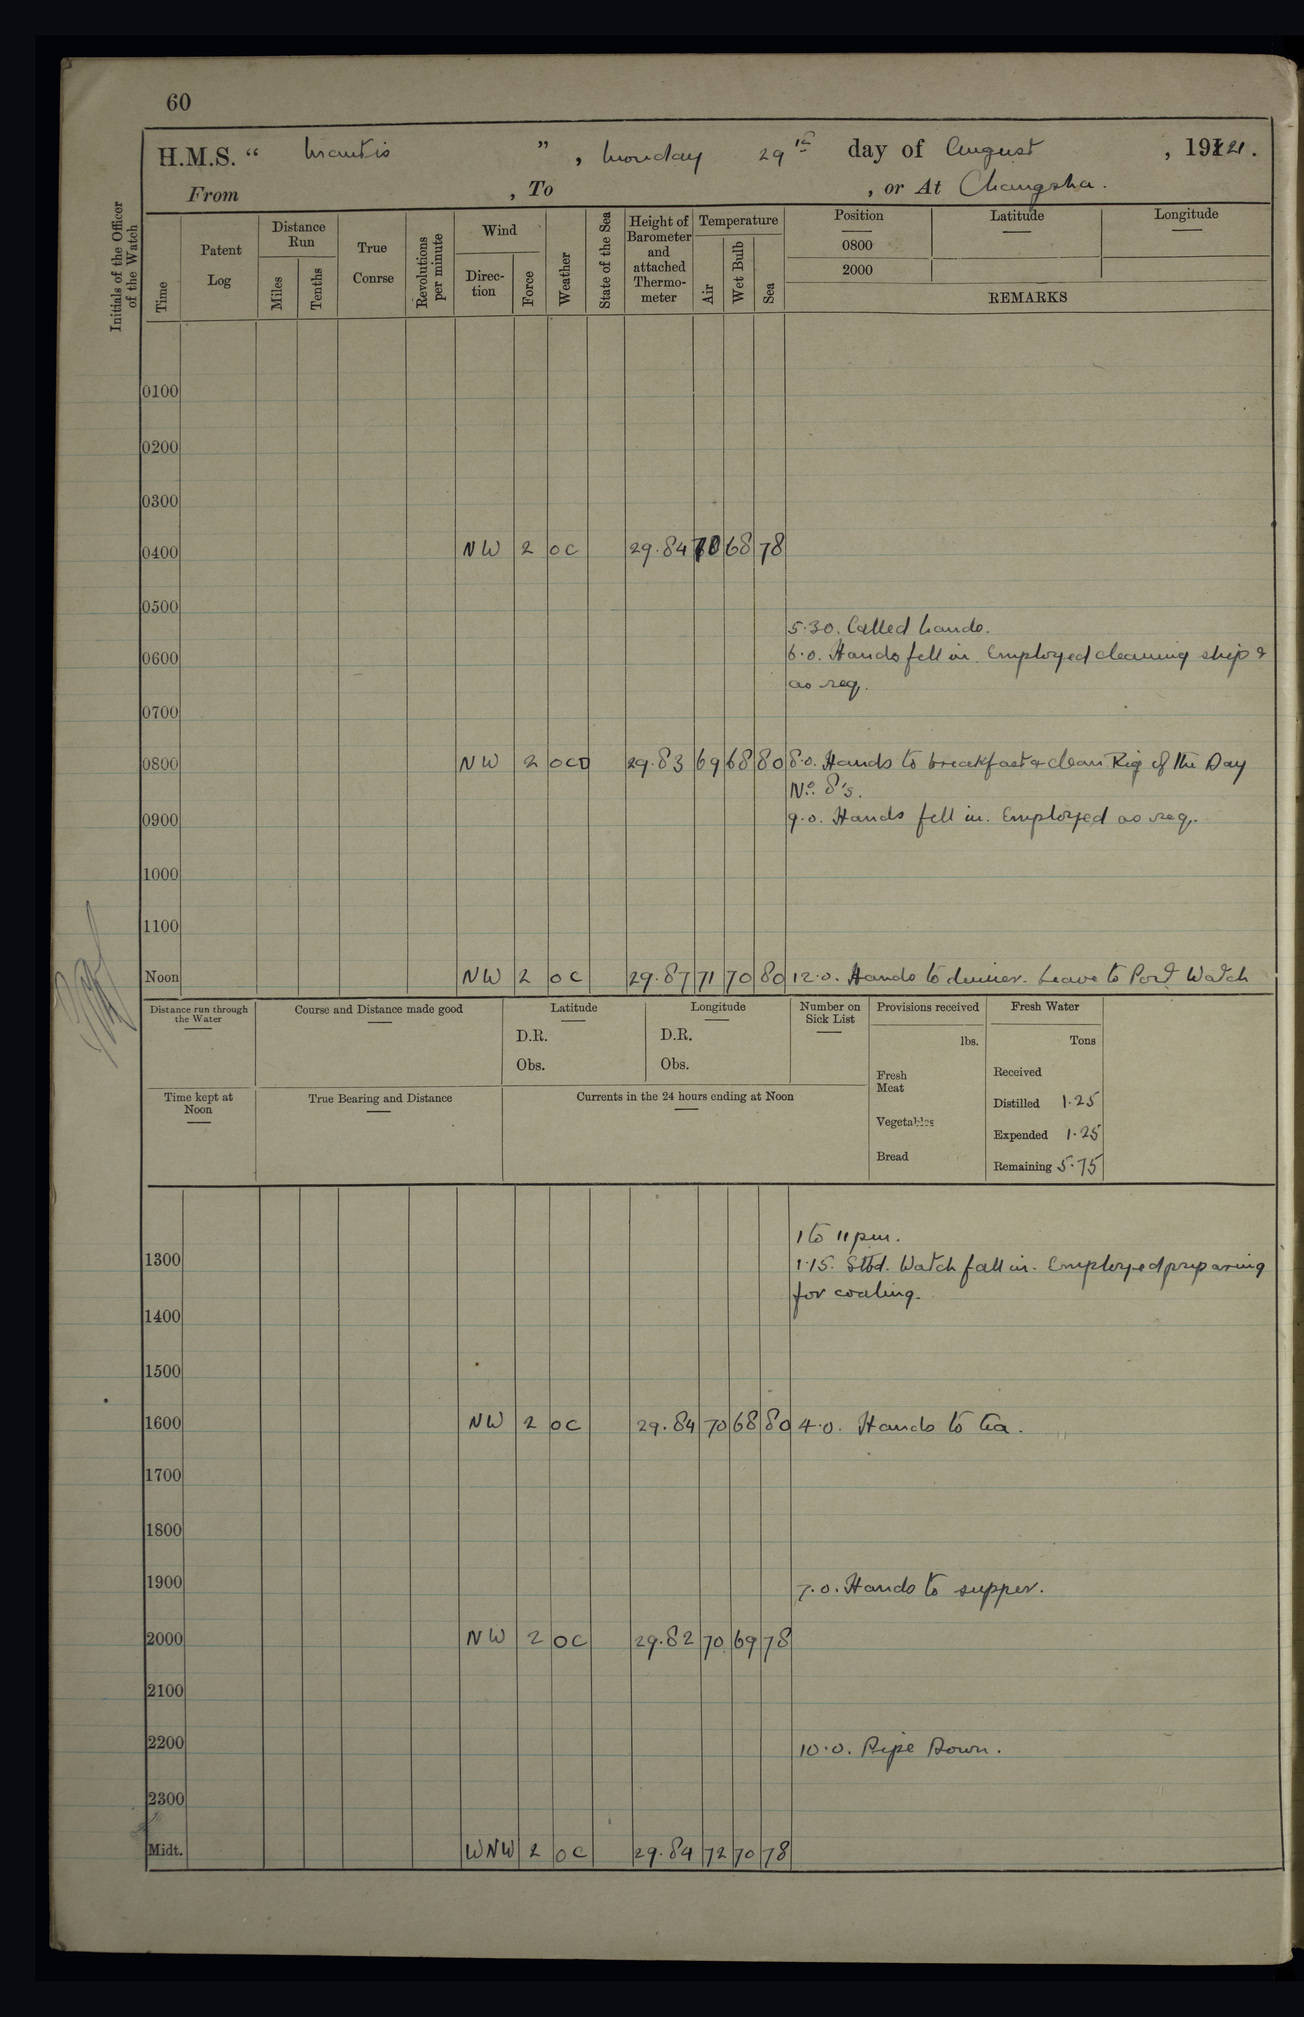 60
H.M.S. “ Mantis ” , Monday 29th day of August , 1921.
From , To , or At Changsha.
Initials of the Officer of the Watch
Time
Patent Log
Distance Run
Miles
Tenths
True Conrse
Revolutions per minute
Wind
Direc-tion
Force
Weather
State of the Sea
Height of Barometer and attached Thermo-meter
Temperature
Air
Wet Bulb
Sea
Position Latitude Longitude
0800
2000
REMARKS
0100
0200
0300
0400 NW 2 oc 29.84 70 68 78
0500
5.30. Called hands.
0600 6.0. Hands fell in. Employed cleaning ship &
as req.
0700
0800 NW 2 OCD 29.83 69 68 80 8.0. Hands to breakfast & clean Rig of the Day
No. 8's.
0900 9.0. Hands fell in. Employed as req.
1000
1100
Noon NW 2 oc 29.87 71 70 80 12.0. Hands to dinner. Leave to Port Watch
Distance run through the Water
Course and Distance made good
Latitude
D.R.
Obs.
Longitude
D.R.
Obs.
Number on Sick List
Provisions received
lbs.
Fresh Meat
Vegetables
Bread
Fresh Water
Tons
Received
Distilled 1.25
Expended 1.25
Remaining 5.75
Time kept at Noon
True Bearing and Distance
Currents in the 24 hours ending at Noon
1 to 11 pm.
1300 1.15. Stbd. Watch fall in. Employed preparing
for coaling.
1400
1500
1600 NW 2 oc 29.84 70 68 80 4.0. Hands to tea.
1700
1800
1900 7.0. Hands to supper.
2000 NW 2 oc 29.82 70 69 78
2100
2200 10.0. Pipe Down.
2300
Midt. WNW 2 oc 29.84 72 70 78